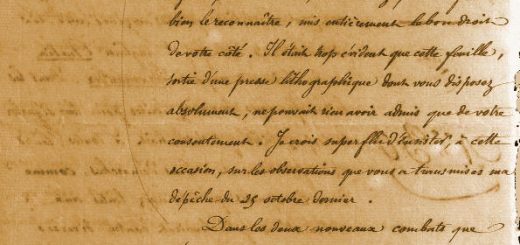 bien le reconnaître, mis entièrement le bon droit
de votre côté. Il était trop évident que cette feuille,
sortie d'une presse lithographique dont vous disposez
absolument, ne pouvait rien avoir admis que de votre
consentement. Je crois superflu d'insister, à cette
occasion, sur les observations que vous a transmises ma
dépêche du 25 octobre dernier.
Dans les deux nouveaux combats que